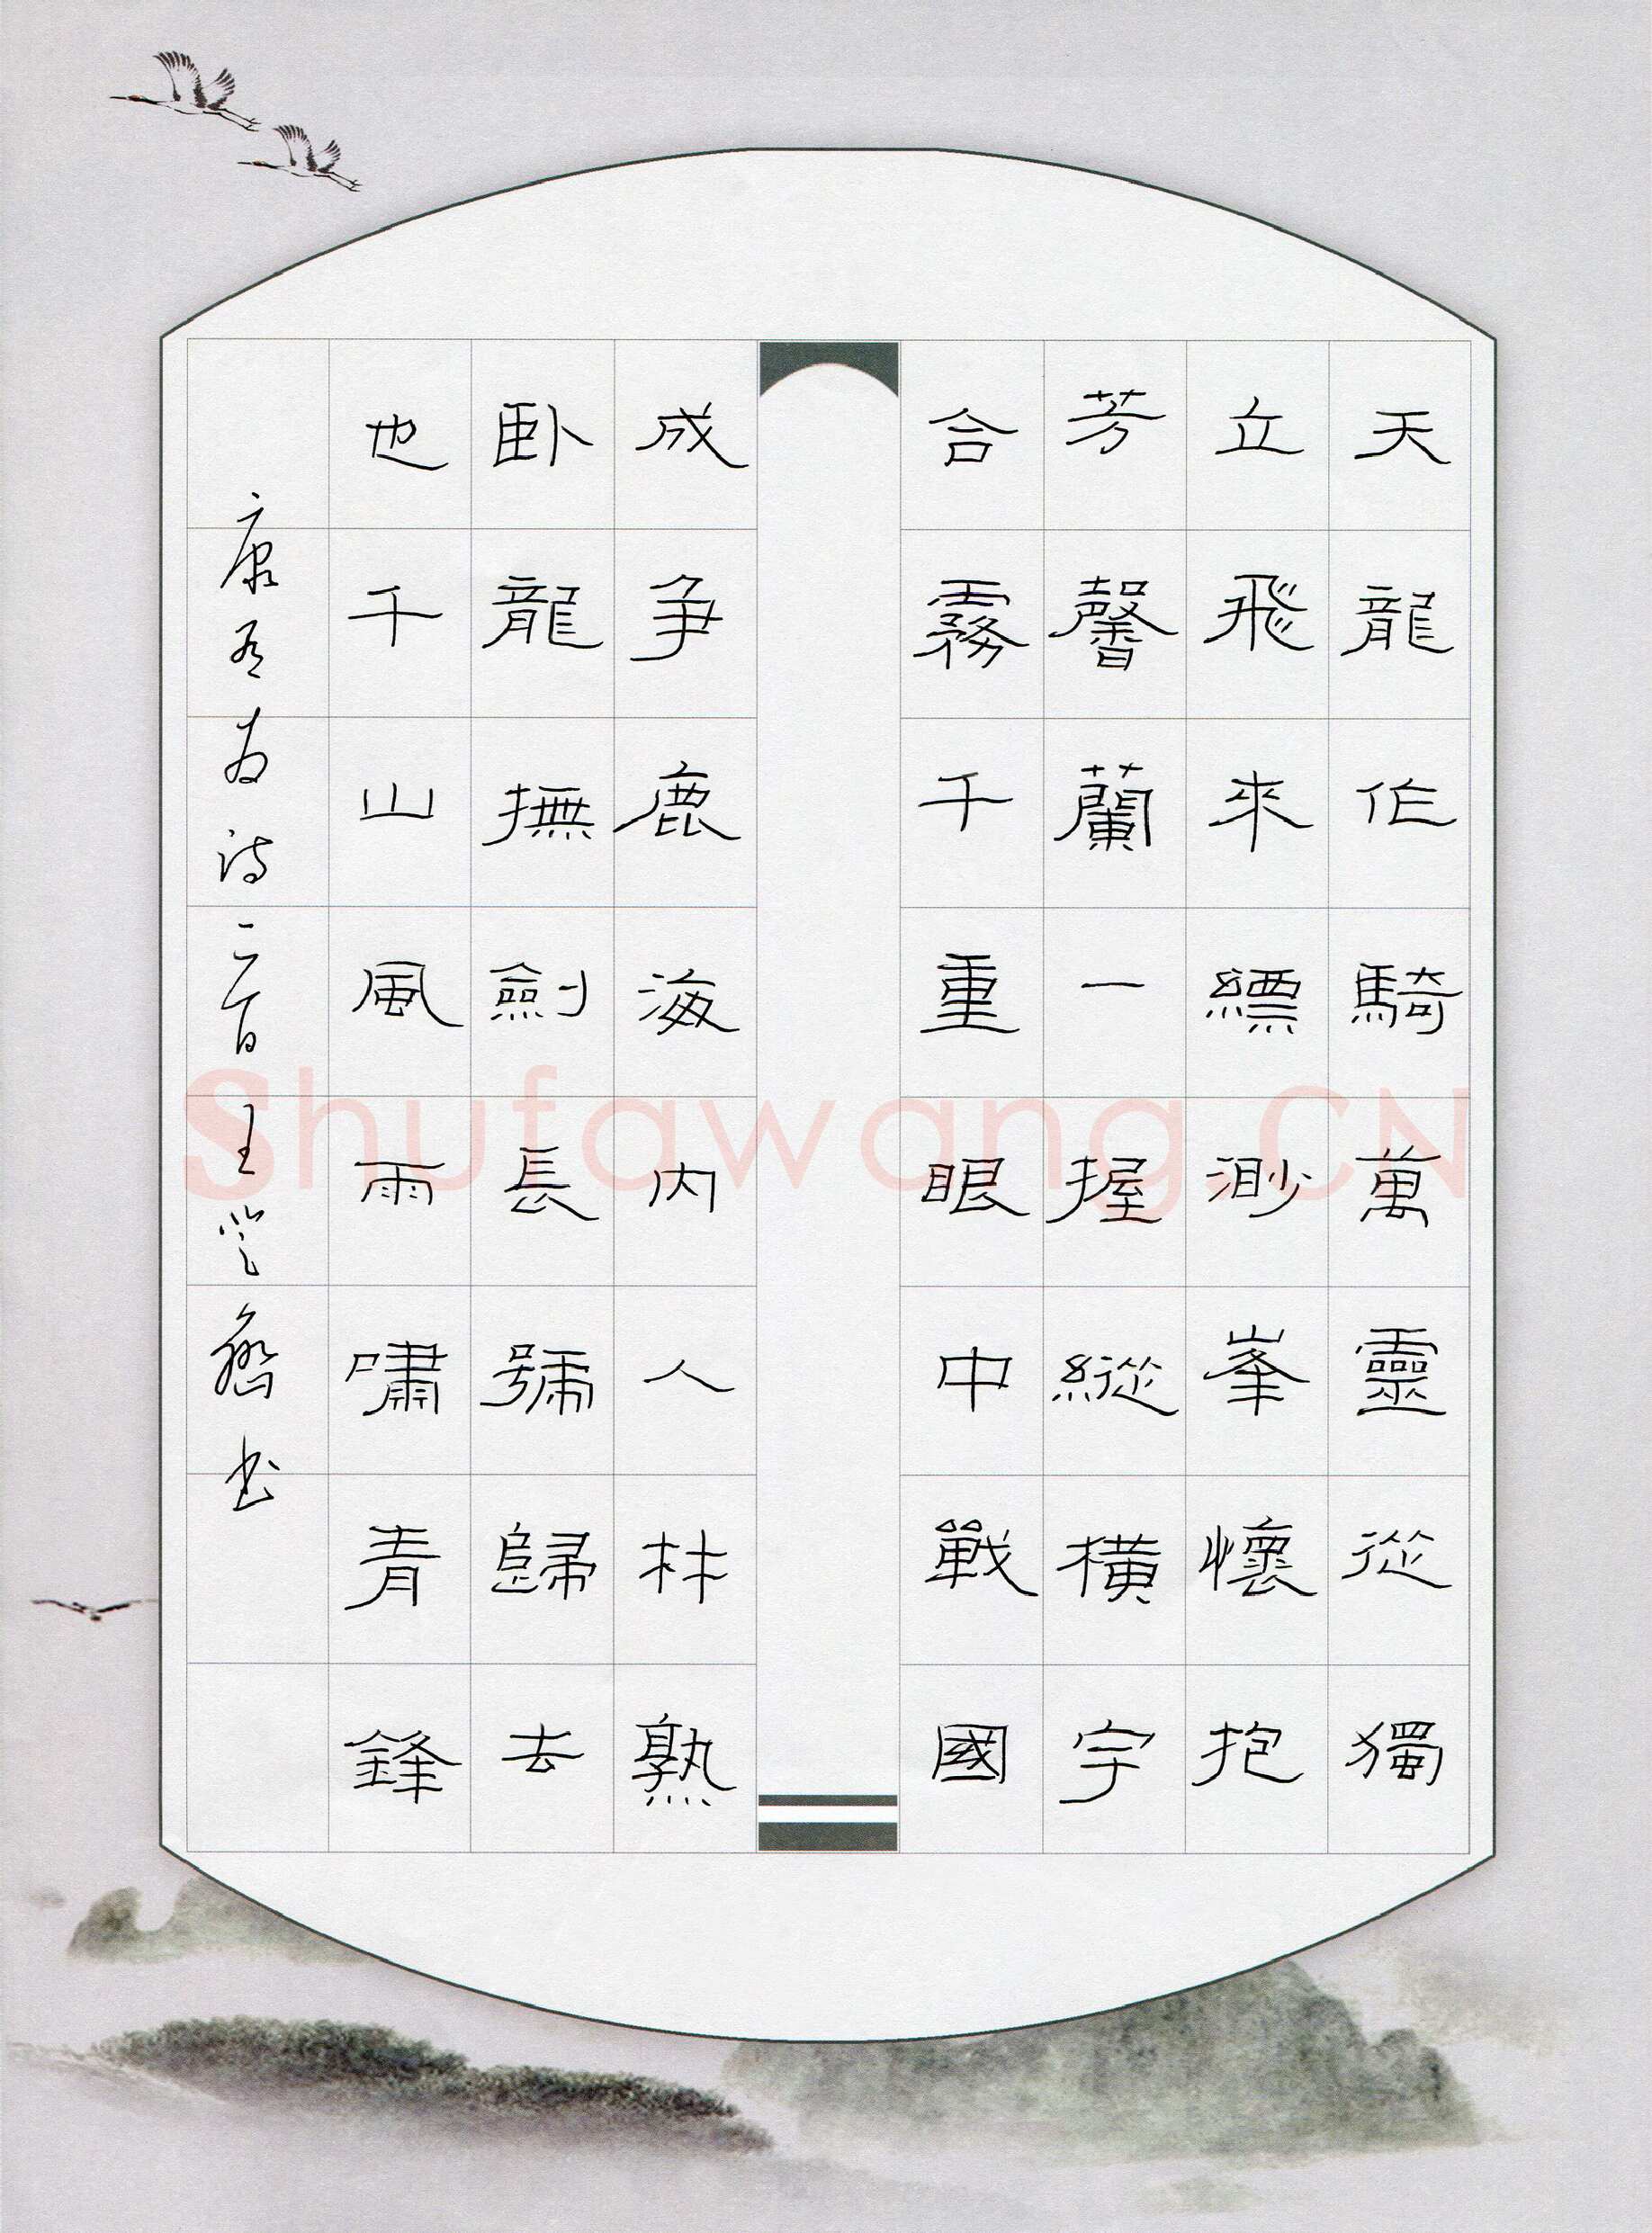 天龍作騎萬靈從獨
立飛來縹渺峯懷抱
芳馨蘭一握縱橫宇
合霧千重眼中戰國
成争鹿海内人林熟
卧龍撫劍長號歸去
也千山風雨嘯青鋒
康有为诗一首王齋书
Shufawang.CN